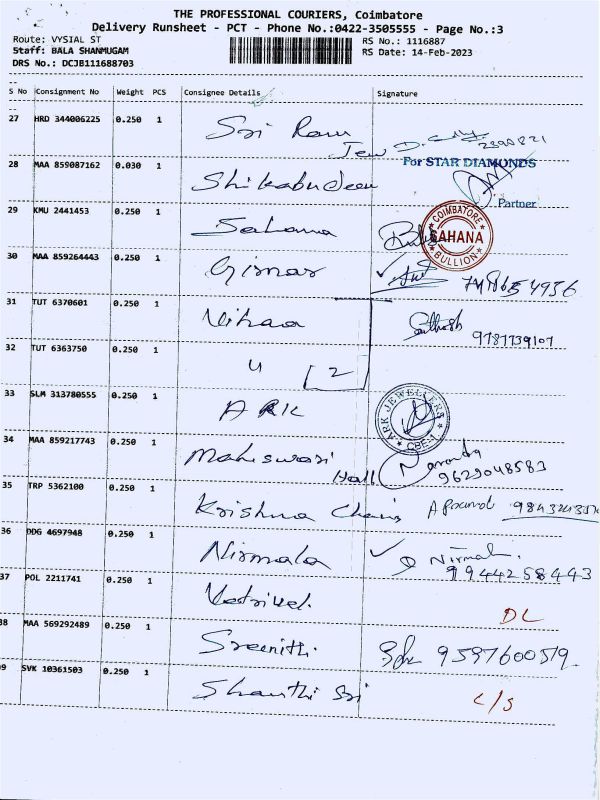 THE PROFESSIONAL COURIERS, Coimbatore
Delivery Runsheet - PCT - Phone No.:0422-3505555 - Page No.:3
Route: VYSIAL ST RS No.: 1116887
Staff: BALA SHANMUGAM RS Date: 14-Feb-2023
DRS No.: DCJB111688703
S No Consignment No Weight PCS Consignee Details Signature
27 HRD 344006225 0.250 1 Sri Ram
Jew
For STAR DIAMONDS
28 MAA 859087162 0.030 1 Shikabudeen
Partner
29 KMU 2441453 0.250 1 Sahana COIMBATORE SAHANA BULLION
30 MAA 859264443 0.250 1
31 TUT 6370601 0.250 1 Santhosh
9787739107
32 TUT 6363750 0.250 1 u 2
33 SLM 313780555 0.250 1 ARK ARK JEWELLERS CBE-1
34 MAA 859217743 0.250 1 Maheswari
Hall 9629048583
35 TRP 5362100 0.250 1 Krishna Chains
36 DDG 4697948 0.250 1 Nirmala Nirmal.
9944258443
37 POL 2211741 0.250 1 Vetrivel DL
38 MAA 569292489 0.250 1 Sreenithi 9597600519
39 SVK 10361503 0.250 1 Shanthi Sri C/S